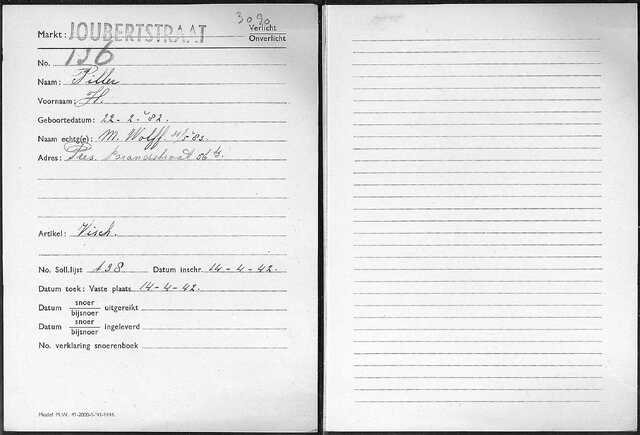 30 90
Markt: JOUBERTSTRAAT Verlicht
Onverlicht
No. 136
Naam: Piller
Voornaam: H.
Geboortedatum: 22-2-'82.
Naam echtg(e): M. Wolff 21/5 '83.
Adres: Pres. Brandstraat 06
Artikel: Visch.
No. Soll.lijst 138 Datum inschr. 14-4-42.
Datum toek: Vaste plaats 14-4-42.
Datum snoer/bijsnoer uitgereikt
Datum snoer/bijsnoer ingeleverd
No. verklaring snoerenboek
Model M.W. 41-2000-5-'41-1946